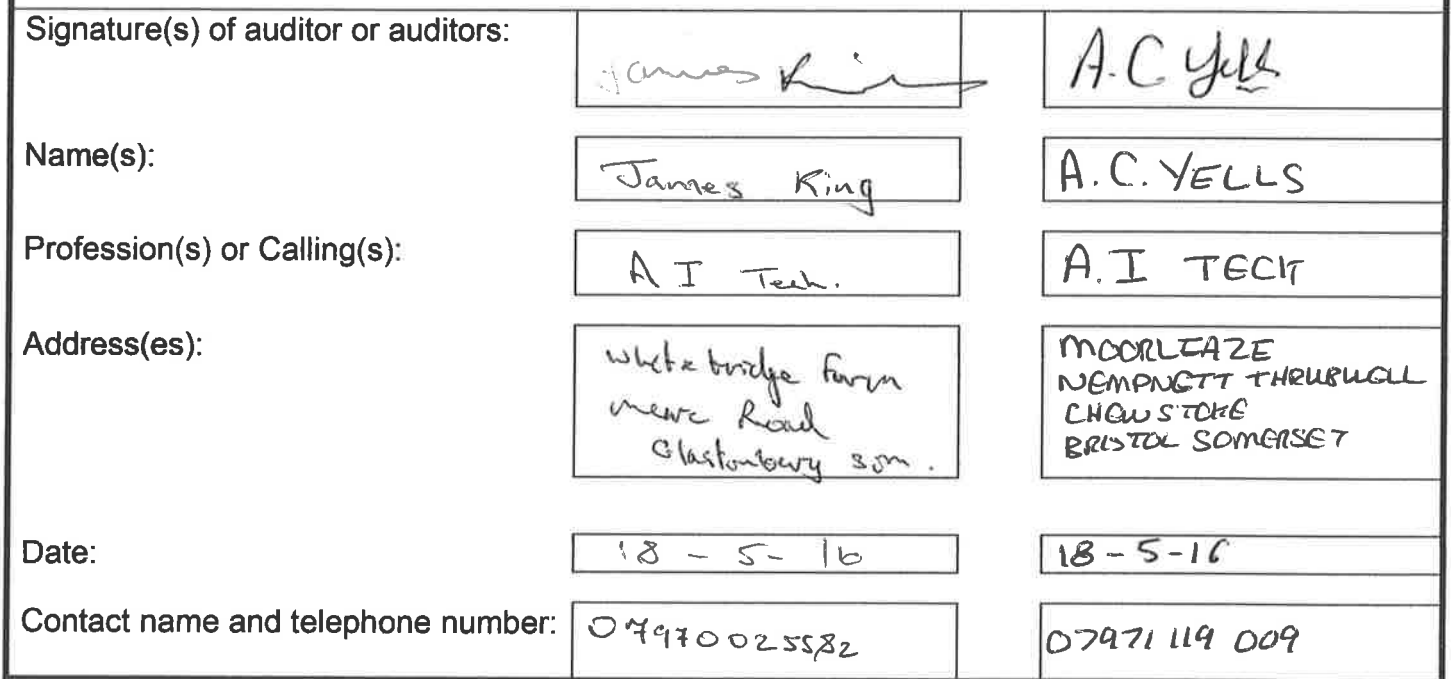 Signature(s) of auditor or auditors:
James Ki
A.C Yells
Name(s):
James King
A.C. YELLS
Profession(s) or Calling(s):
A I Tech.
A.I TECH
Address(es):
White bridge Farm
meare Road
Glastonbury som.
MOORLEAZE
NEMPNETT THRUBWELL
CHEW STOKE
BRISTOL SOMERSET
Date:
18 - 5 - 16
18 - 5 - 16
Contact name and telephone number:
07970025582
07971 119 009